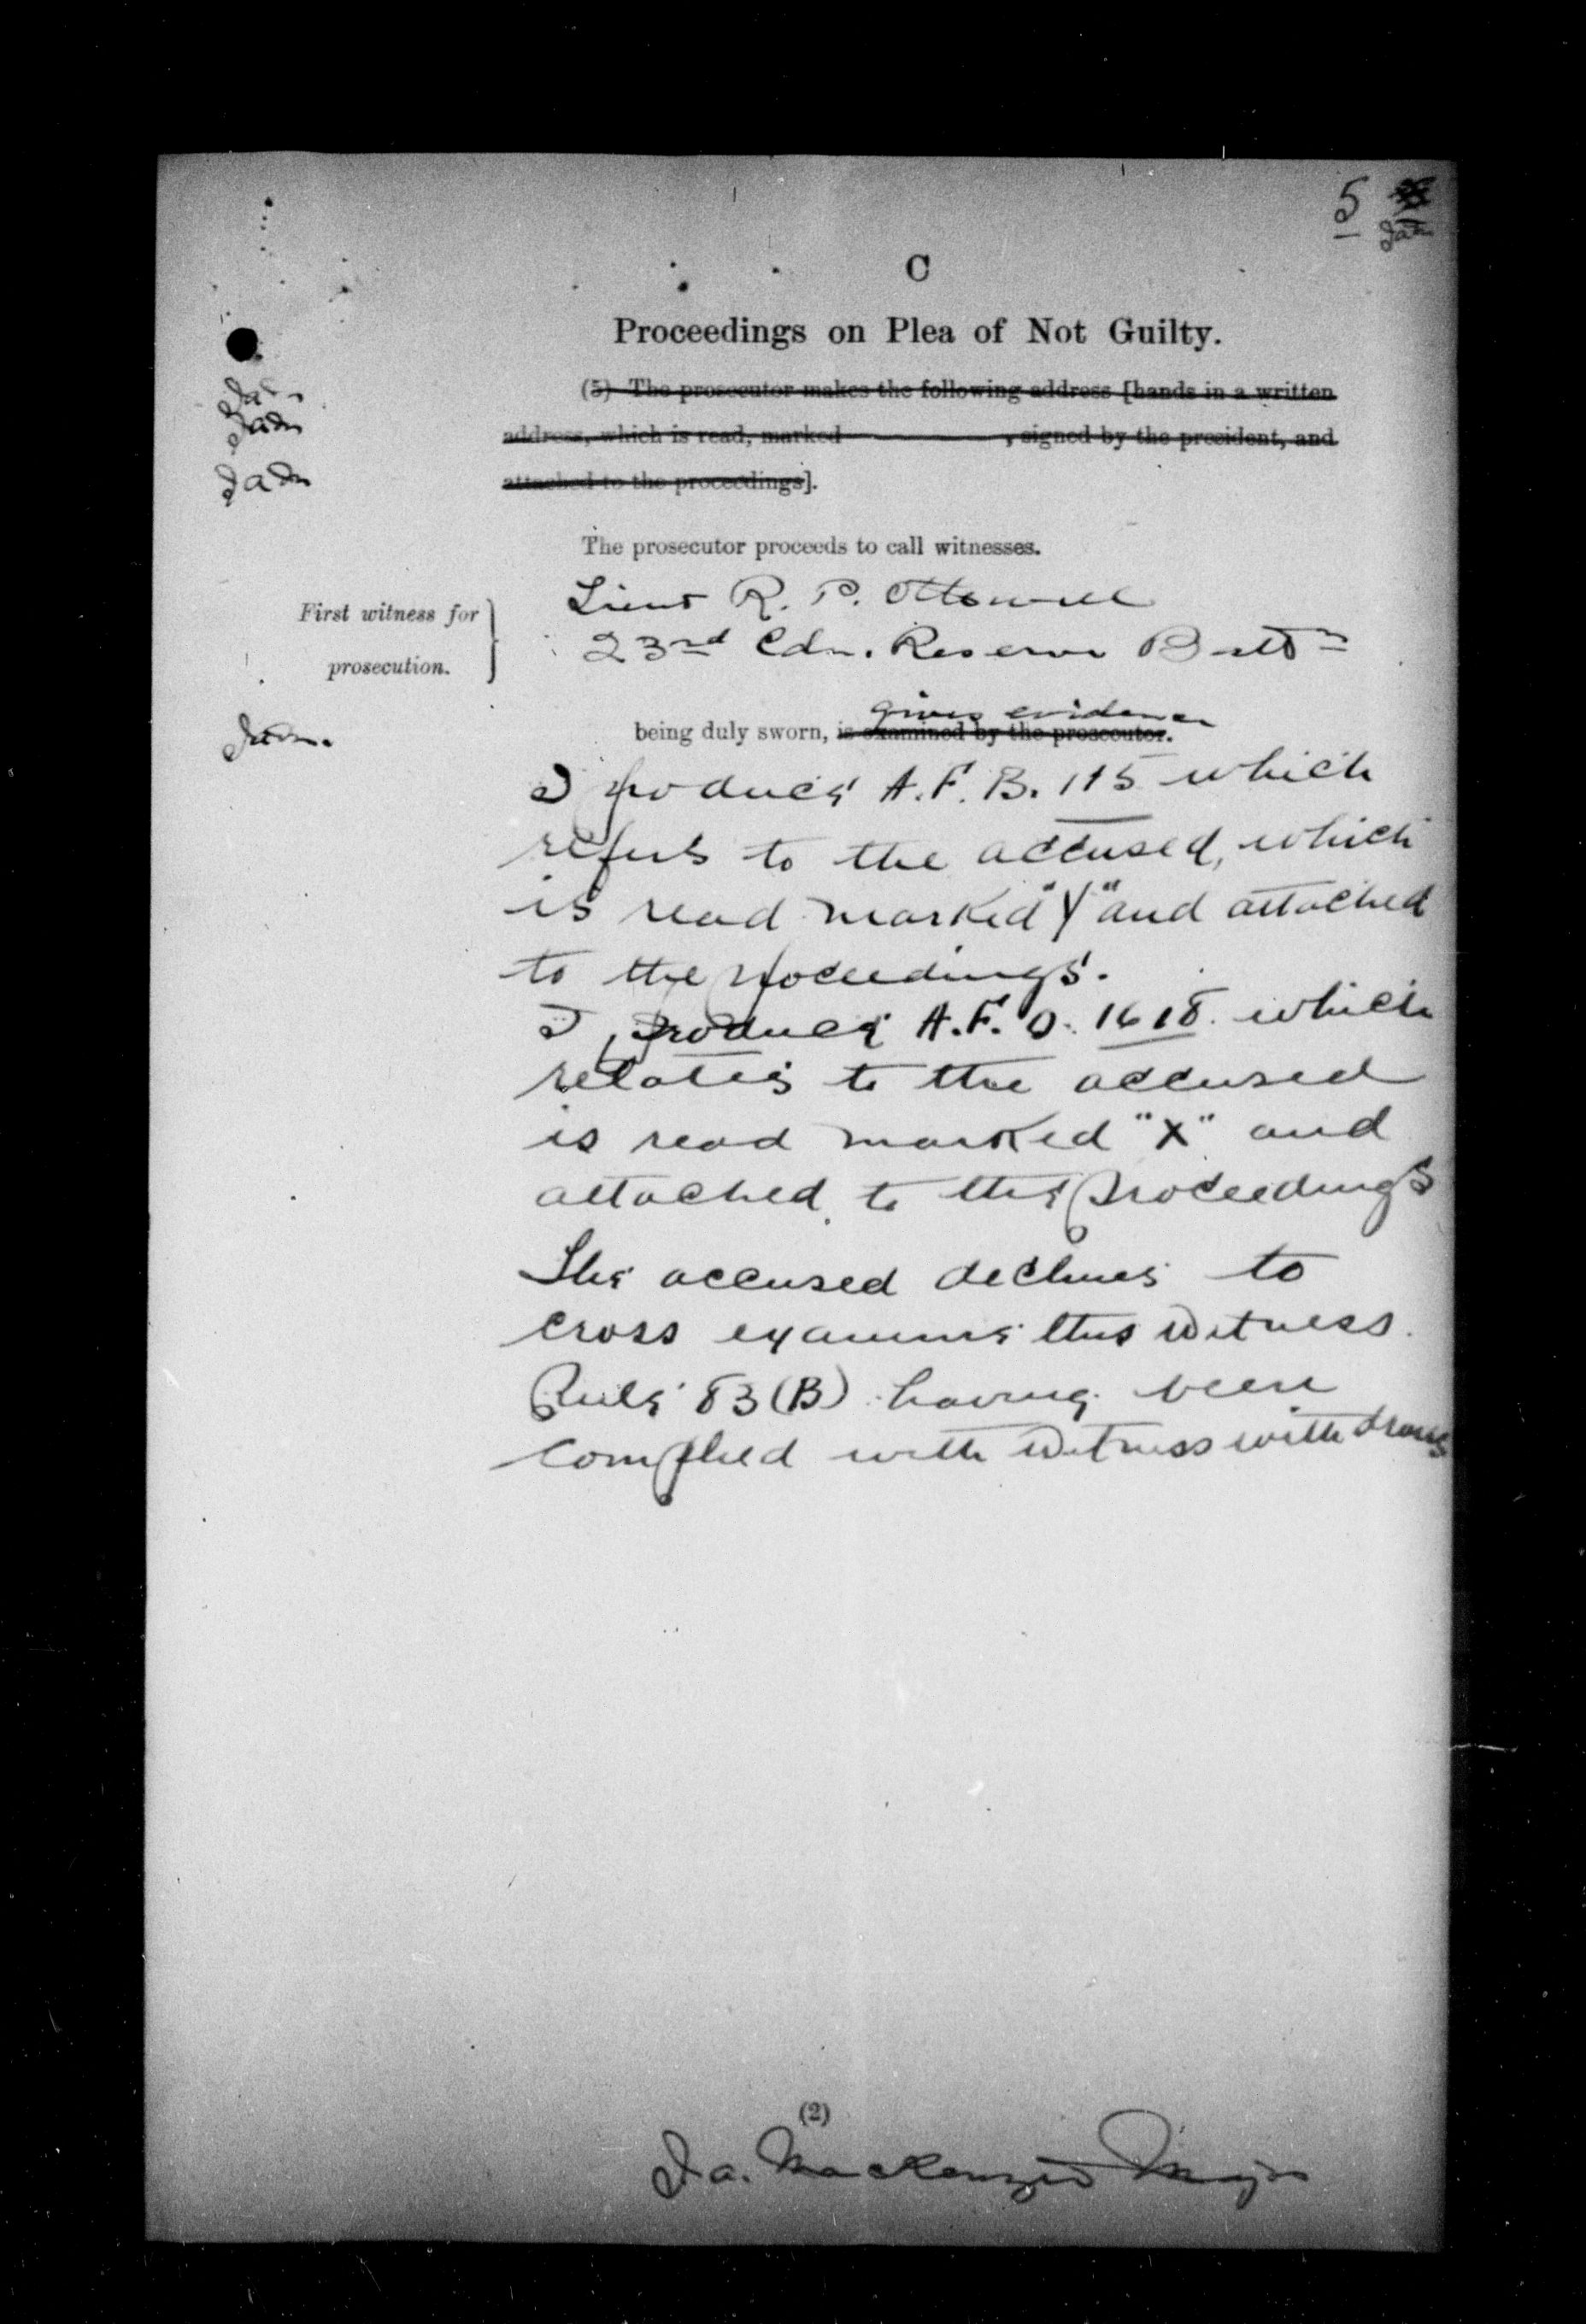 5
C
Proceedings on Plea of Not Guilty.
(5) The prosecutor makes the following address [hands in a written
address, which is read, marked , signed by the president, and
attached to the proceedings].
The prosecutor proceeds to call witnesses.
First witness for
prosecution.
Lieut R. P. Ottewell
23rd Cdn. Reserve Battn
gives evidence
being duly sworn, is examined by the prosecutor.
I produce A.F. B. 115 which
refers to the accused, which
is read marked "Y" and attached
to the proceedings.
I produce A.F. O. 1618. which
relates to the accused
is read marked "X" and
attached to the proceedings
The accused declines to
cross examine this witness.
Rule 83 (B) having been
complied with witness withdraws
(2)
J a. MacKenzie Major